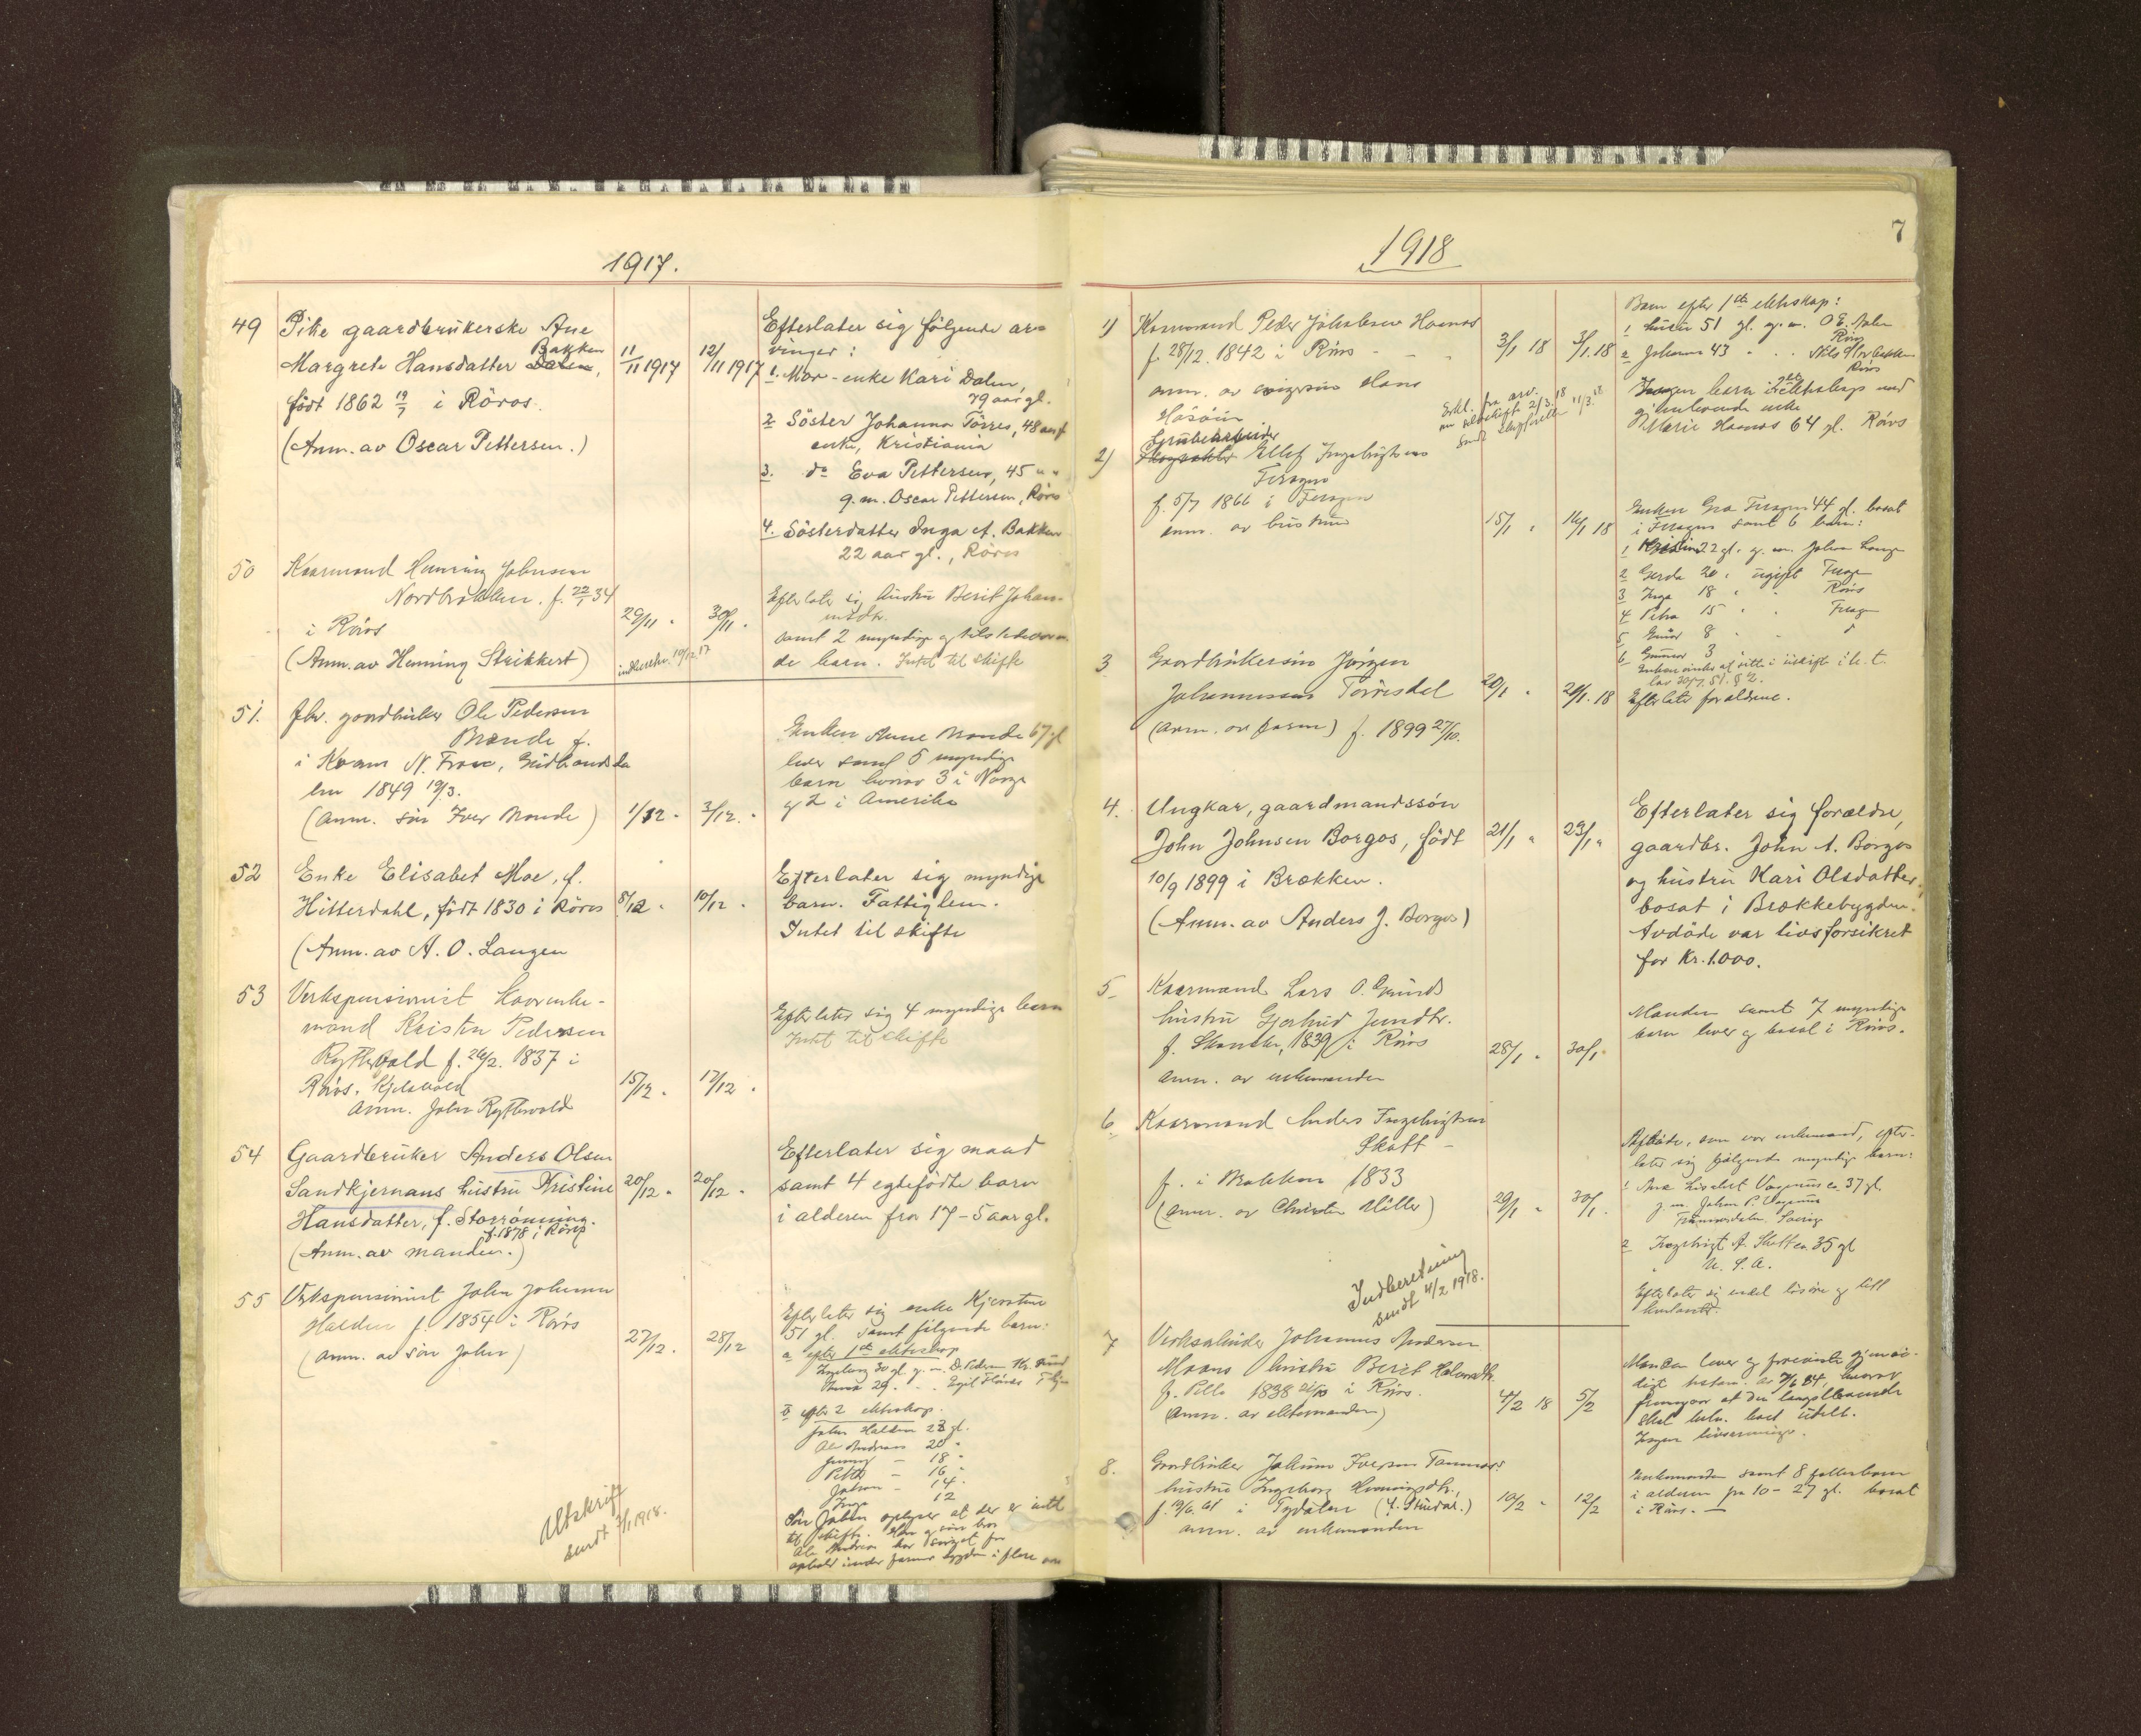 1917.
49 Pike gaardbrukerske Ane
Margrete Hansdatter Dalen, Bakken
født 1862 19/7 i Röros.
(Anm. av Oscar Pettersen.)
11/11 1917
12/11 1917
Efterlater sig følgende ar-
vinger:
1. Mor - enke Kari Dalen,
79 aar gl.
2 Söster Johanna Törres, 48 aar
enke, Kristiania
3. do Eva Pettersen, 45 " "
g.m. Oscar Pettersen, Röros
4. Sösterdatter Inga A. Bakken
22 aar gl., Röros
50 Kaarmand Henning Johnsen
Nordbrekken. f. 22/1 34
i Röros
(Anm. av Henning Strikkert)
29/11 "
30/11 "
indberetn. 19/12 17
Efterlater sig hustru Berit Johan-
samt 2 myndige og tilstedeværen
de barn. Intet til skifte
51. Fhv. gaardbruker Ole Pedersen
Brænde f.
i Kvam N. Fron, Gudbrandsda
len 1849 19/3.
(anm. sön Iver Brænde)
1/12 "
3/12 "
Enken Anne Brænde 67 gl
lever samt 5 myndige
barn hvorav 3 i Norge
og 2 i Amerika
52 Enke Elisabet Moe, f.
Hitterdahl, födt 1830 i Röros
(Anm. av A. O. Langen
8/12 "
10/12 "
Efterlater sig myndige
barn. Fattiglem.
Intet til skifte
53 Verkspensionist Kaarenke-
mand Kristen Pedersen
Rytthvold f. 26/2. 1837 i
Röros. Kjelsvold
Anm. John Rytthvold
15/12 "
17/12 "
Efterlater sig 4 myndige barn
Intet til skifte
54 Gaardbruker Anders Olsen
Sandkjernans hustru Kristine
Hansdatter, f. Storrönning.
f. 1878 i Röros
(Anm. av manden.)
20/12 "
20/12 "
Efterlater sig mand
samt 4 egtefödte barn
i alderen fra 17 - 5 aar gl.
55 Verkspensionist John Johnsen
Halden f. 1854 i Röros
(anm. av sön John)
27/12.
28/12
Efterlater sig enke Kjerstine
51 gl. samt fölgende barn:
a efter 1ste ekteskap
Ingeborg 30 gl. g. m.
29
b efter 2 ekteskap.
John Halden 23 gl.
Ole Andreas 20 "
18 "
Petter - 16 "
Johan - 14 "
Inga 12
Sön Johan oplyser at der er intet
til skifte. Han og sön bror
Ole Andreas har sörget for
ophold under farens sygdom i flere aar
Altskrift
sendt 3/1 1918.
1918
7
1) Kaarmand Peder Jakobsen Haanes
f. 28/12. 1842 i Röros
anm. av svigersön Hans
3/1 18
3/1. 18
Barn efter 1ste ekteskap:
1 51 gl. g. m. O E. Aalen
Röros
2 Johanna 43 " . . Nils
Röros
Ingen barn i 2det ekteskap med
gjenlevende enke
Marie Haanes 64 gl. Röros
Erkl. fra arv.
om selvskifte 2/3. 18
11/3. 18
2) Skogvokter Grubearbeider Ellef Ingebrigtsen
Feragen
f. 5/7 1866 i Feragen
anm. av hustruen
15/1 "
16/1 18
Enken Gra Feragen 44 gl. bosat
i Feragen samt 6 barn:
1 Kristine 22 gl. g. m. Johan Lange
2 Gerda 20 " ugift Ferag
3 Inga 18 " " Röros
4 Petra 15 " " Ferag
5 8 " "
6 Gunnar 3 "
Enken önsker at sitte i uskifte i h. t.
lov 30/7. 51. § 2.
3 Gaardbrukersön Jörgen
Johannessen Törresdal
(anm. av faren) f. 1899 27/10.
20/1 "
21/1. 18
Efterlater forældrene.
4. Ungkar, gaardmandssön
John Johnsen Borgos, födt
10/9 1899 i Brækken.
(Anm. av Anders J. Borgos)
21/1 "
23/1 "
Efterlater sig forældre,
gaardbr. John A. Borgos
og hustru Kari Olsdatter,
bosat i Brækkebygden.
Avdöde var livsforsikret
for Kr. 1.000.
5 Kaarmand Lars O. Grinds
hustru Gjertrud Jensdtr.
f. Skancke, 1839 i Röros
anm. av enkemanden
28/1 "
30/1 "
Manden samt 7 myndige
barn lever og bosat i Röros.
6 Kaarmand Anders Ingebrigtsen
Skott -
f. i Brækken 1833
(anm. av Christen Möller)
29/1 "
30/1.
Afdöde, som var enkemand, efter-
later sig fölgende myndige barn:
1 Ane Lisabet Vagnæs ca. 37 gl.
g. m. Johan P. Vagnæs
Sverige
2 Ingebrigt A. Skott ca. 35 gl
U. S. A.
Efterlater sig endel lösöre og litt
Indberetning
sendt 4/2 1918.
7 Verksarbeider Johannes Andersen
Moans hustru Berit
f. 1838 i Röros.
(anm. av ektemanden)
4/2 18
5/2
Manden lever og
fremgaar at den længstlevende
skal
Ingen livsarvinger.
8. Gaardbruker Johannes Iversen Tamnes
hustru Ingeborg Henningsdtr.,
f. 19/6. 61 i Tydalen (f. Stuedal.)
anm. av enkemanden
10/2 "
12/2
Enkemanden samt 8 fællesbarn
i alderen fra 10 - 27 gl. bosat
i Röros. -